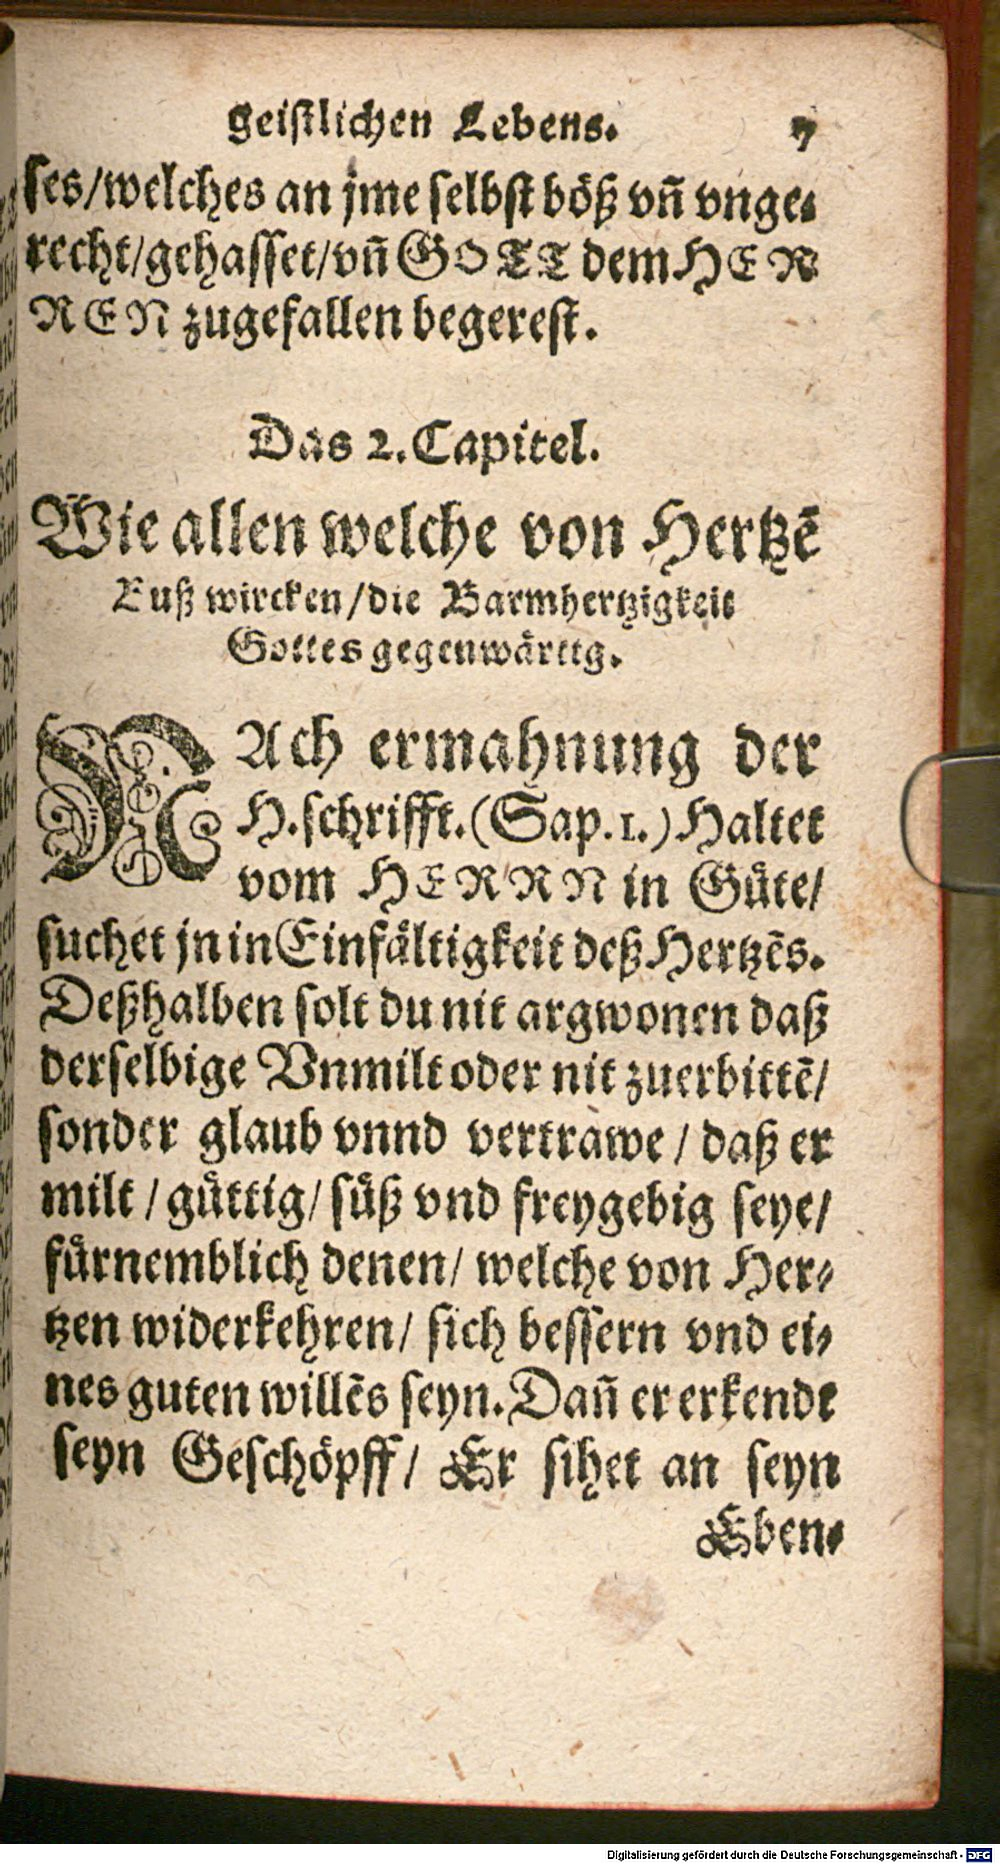 geistlichen Lebens. 7
ses/welches an jme selbst böß vñ vnge-
recht/gehasset/vñ GOTT dem HER
REN zugefallen begerest.
Das 2. Capitel.
Wie allen welche von Hertzē
Buß wircken/die Barmhertzigkeit
Gottes gegenwärtig.
NAch ermahnung der
H.schrifft.(Sap.1.) Haltet
vom HERRN in Güte/
suchet jn in Einfältigkeit deß Hertzēs.
Deßhalben solt du nit argwonen daß
derselbige Vnmilt oder nit zuerbittē/
sonder glaub vnnd vertrawe / daß er
milt / güttig/ süß vnd freygebig seye/
fürnemblich denen/ welche von Her-
tzen widerkehren/ sich bessern vnd ei-
nes guten willēs seyn. Dañ er erkendt
seyn Geschöpff/ Er sihet an seyn
Eben-
Digitalisierung gefördert durch die Deutsche Forschungsgemeinschaft - DFG